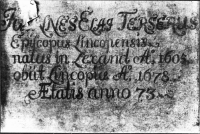 JOHANNES ELAI TERSERUS
Episcopus Lincopensis
natus in Lexand A. 1605
obiit Lincopiæ A. 1678
Ætatis anno 73